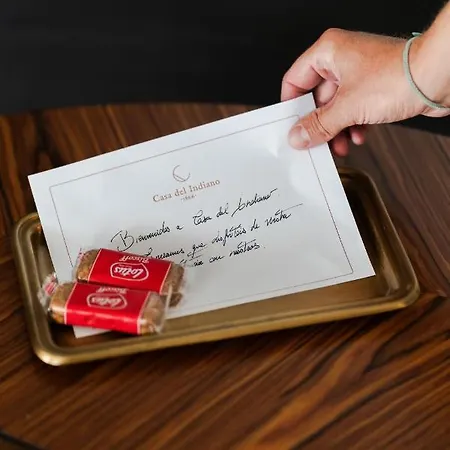 Casa del Indiano
Bienvenidos a Casa del Indiano
Esperamos que disfrutéis de vuestra
con nosotros.
Lotus
Biscoff
Lotus
Biscoff